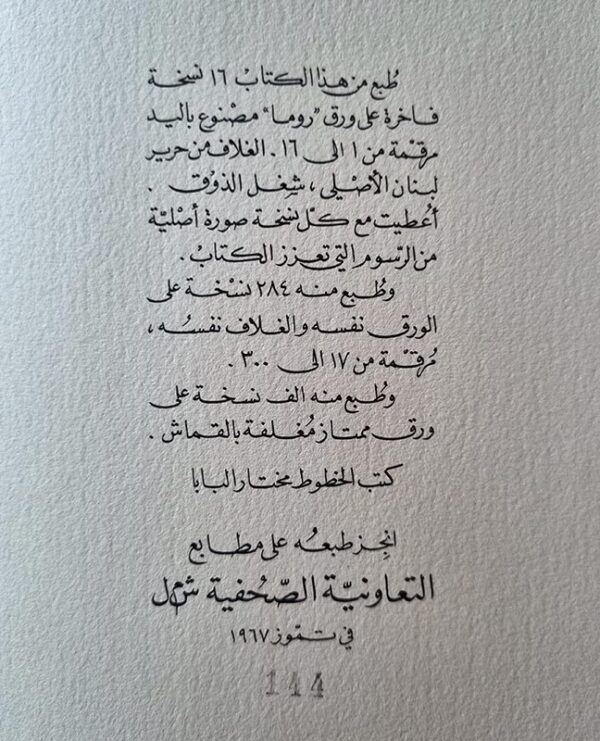 طُبع من هذا الكتابْ ١٦ نسخة
فاخرة على ورق "روما" مصْنوع باليد
مرقمة من ١ الى ١٦. الغلاف من حرير
لبنان الأصْيلي، شِغل الذوُق.
أُعطيت مع كلّ نسخة صورة أصْليّة
من الرّسوم التي تعزز الكتابْ.
وطُبع منه ٢٨٤ نسْخة على
الورق نفسه والغلاف نفسُه،
مُرقمْة من ١٧ الى ٣٠٠.
وطُبع منه الف نسخة على
ورق ممتاز مُغلفة بالقماش.
كتب الخطوط مختار البابا
انجِز طبعُه على مطابع
التعاونيّة الصّحُفية ش م ل
في تمّوز ١٩٦٧
144